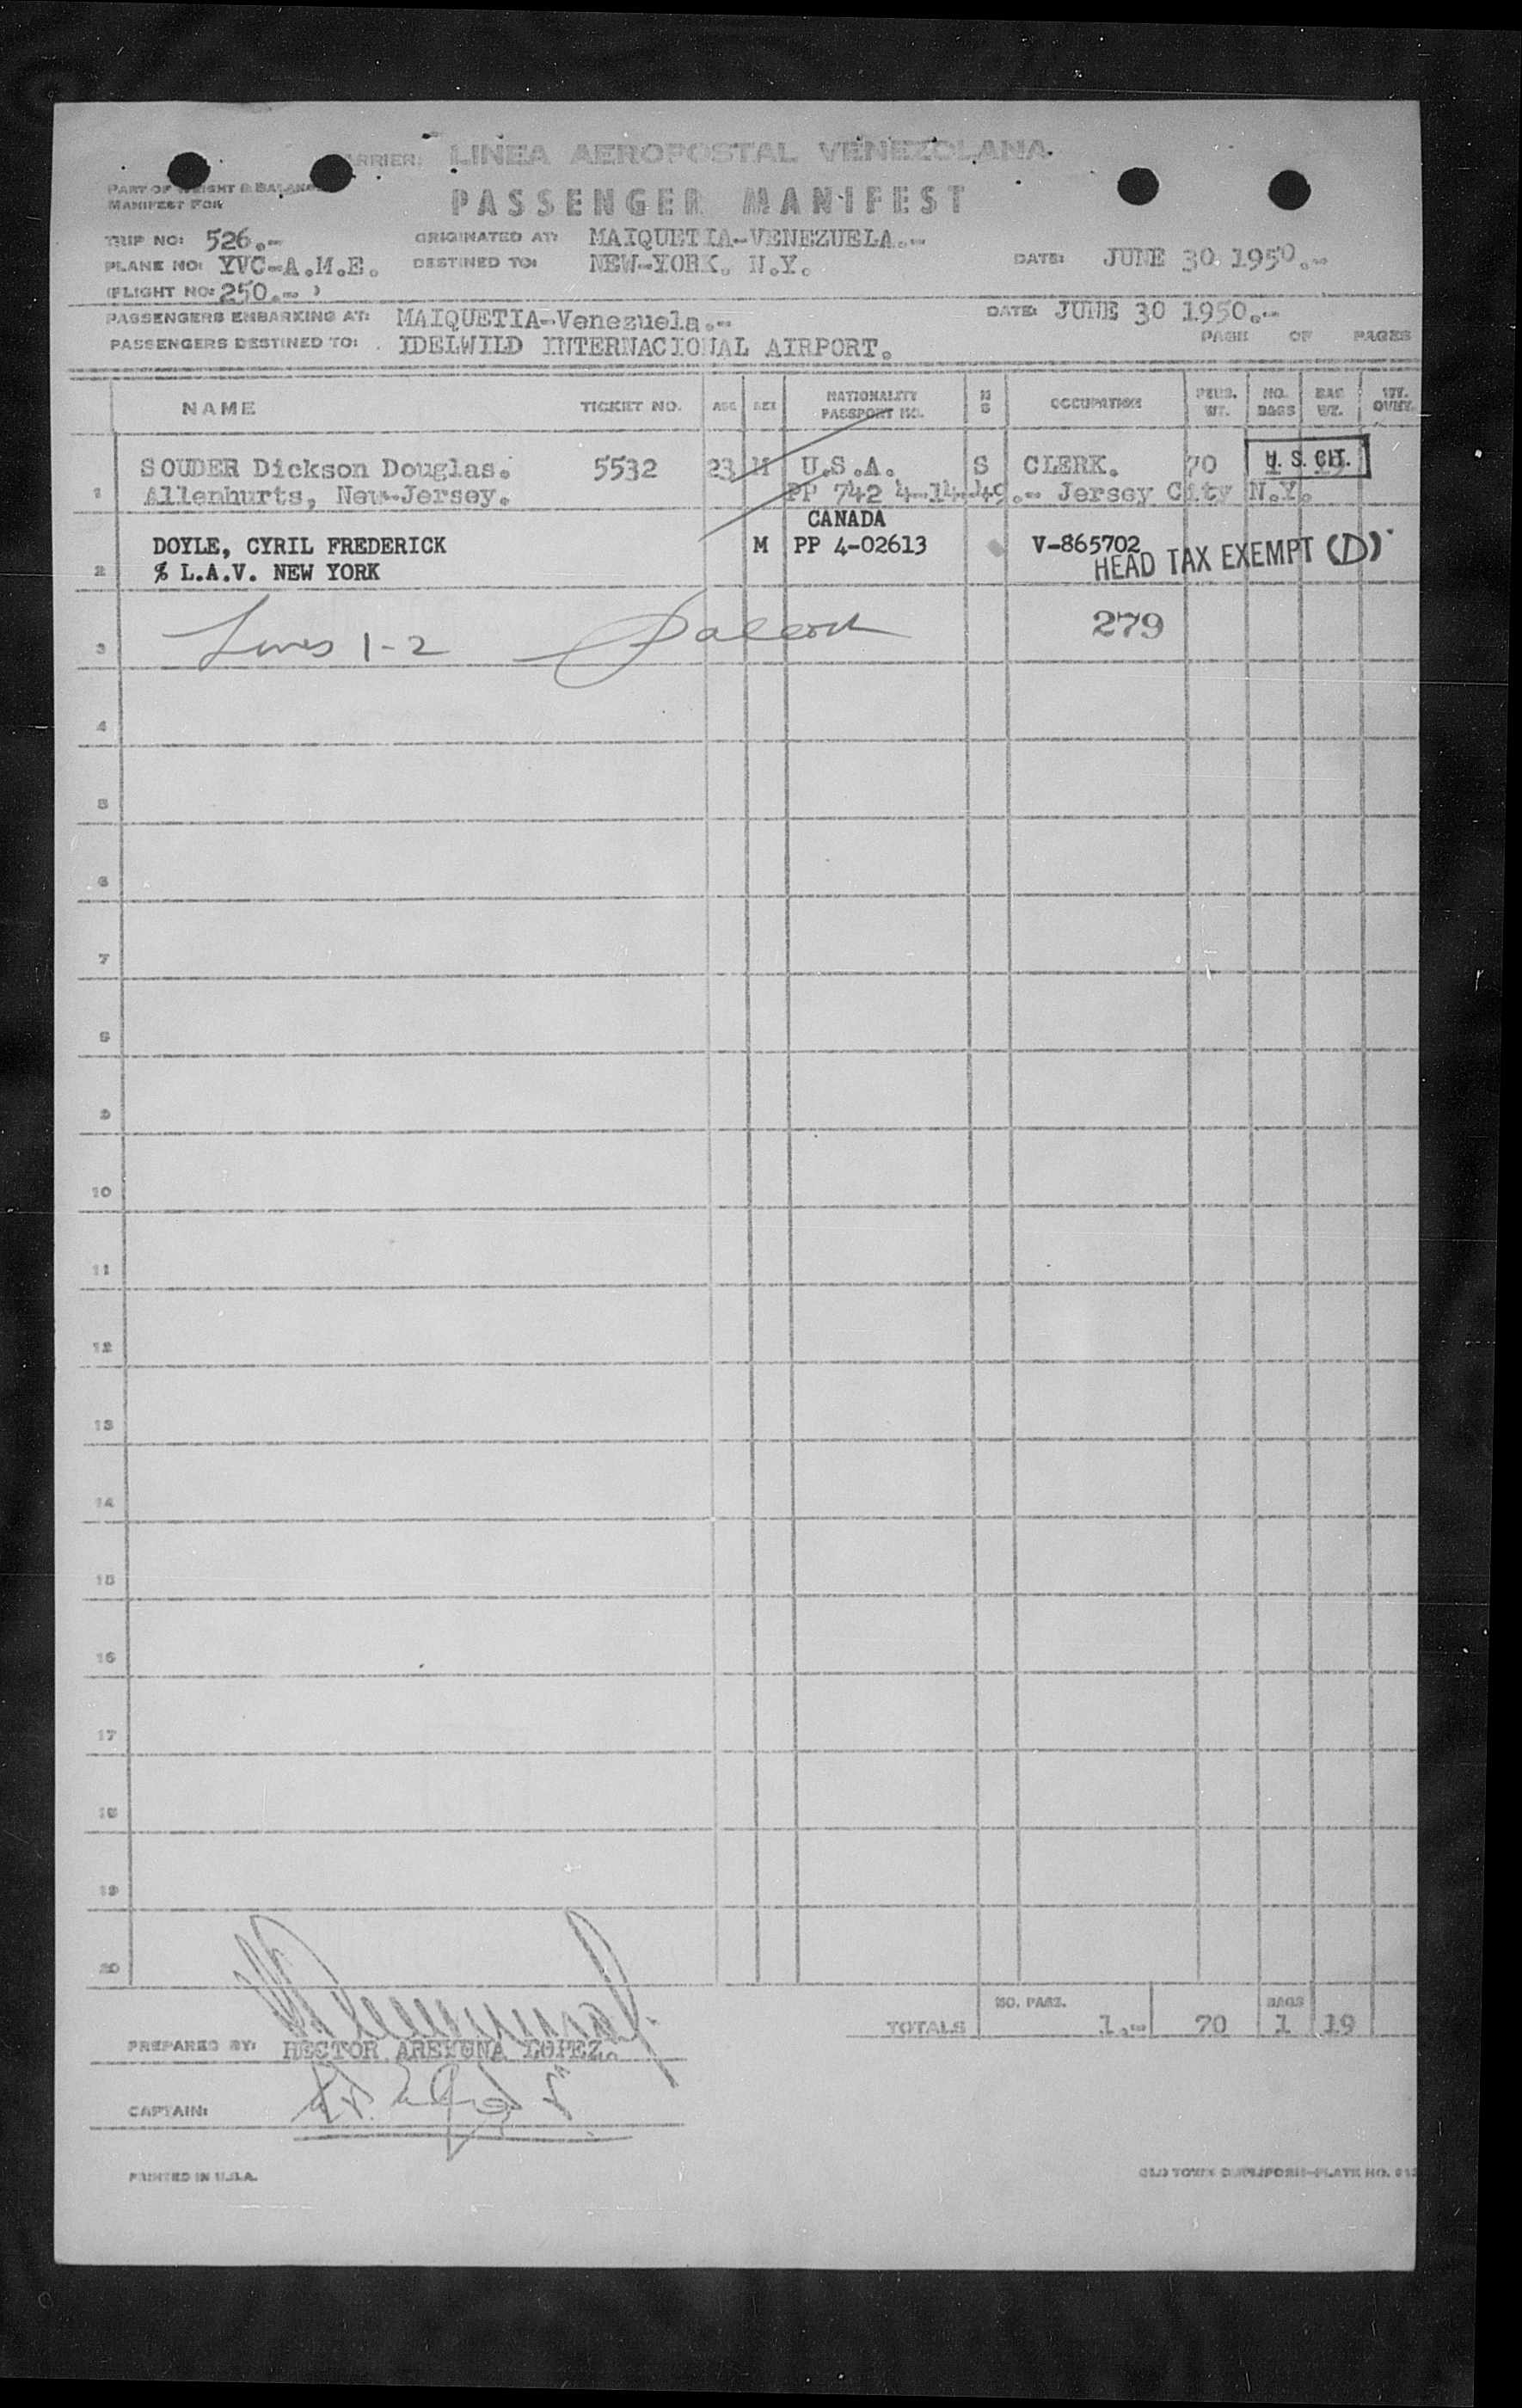 CARRIER: LINEA AEROPOSTAL VENEZOLANA
PART OF WEIGHT & BALANCE
MANIFEST FOR
PASSENGER MANIFEST
TRIP NO: 526.- ORIGINATED AT: MAIQUETIA-VENEZUELA.-
PLANE NO: YVC-A.M.E. DESTINED TO: NEW-YORK. N.Y. DATE: JUNE 30 1950.-
(FLIGHT NO: 250.- )
PASSENGERS EMBARKING AT: MAIQUETIA-Venezuela.- DATE: JUNE 30 1950.-
PASSENGERS DESTINED TO: IDELWILD INTERNACIONAL AIRPORT. PAGE OF PAGES
NAME TICKET NO. AGE SEX NATIONALITY PASSPORT NO. M S OCCUPATION PERS. WT. NO. BAGS BAG WT.
SOUDER Dickson Douglas. 5532 23 M U.S.A. S CLERK. 70 1 19 U. S. CIT.
1 Allenhurts, New-Jersey. PP 742 4-14-49.- Jersey City N.Y.
CANADA
DOYLE, CYRIL FREDERICK M PP 4-02613 V-865702
2 % L.A.V. NEW YORK HEAD TAX EXEMPT (D)
3 Lines 1-2 279
4
5
6
7
8
9
10
11
12
13
14
15
16
17
18
19
20
NO. PASS. BAGS
TOTALS 1.- 70 1 19
PREPARED BY: HECTOR AREKUNA LOPEZ.
CAPTAIN:
PRINTED IN U.S.A. OLD TOWN